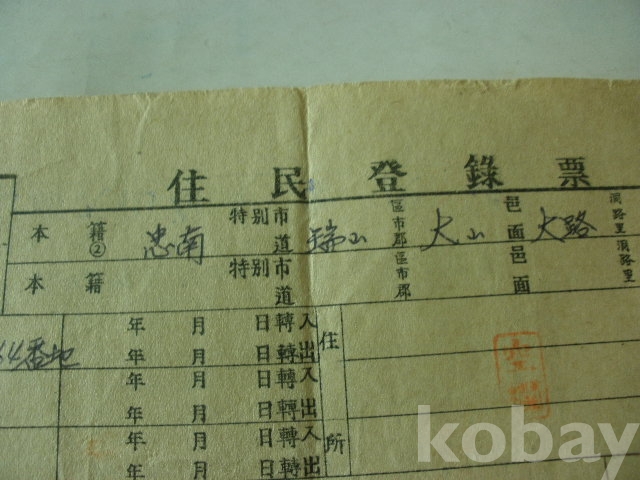 住民登錄票
本籍② 忠南 特別市道 瑞山 區市郡 大山 邑面 大路 洞路里
本籍 特別市道 區市郡 邑面 洞路里
年 月 日轉入 住
64番地 年 月 日轉出
年 月 日轉入
年 月 日轉出
年 月 日轉入 所
年 月 日轉出
kobay